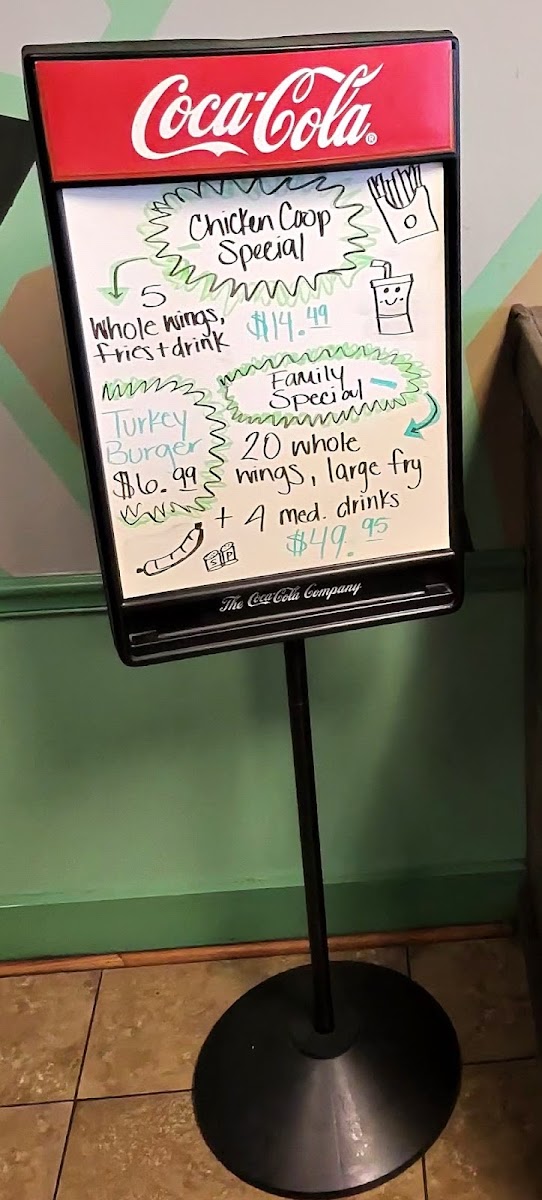 Coca-Cola®
Chicken Coop
Special
5
Whole wings,
fries + drink
$14.49
Family
Special
Turkey
Burger
$6.99
20 whole
wings, large fry
+ 4 med. drinks
$49.95
S P
The Coca-Cola Company